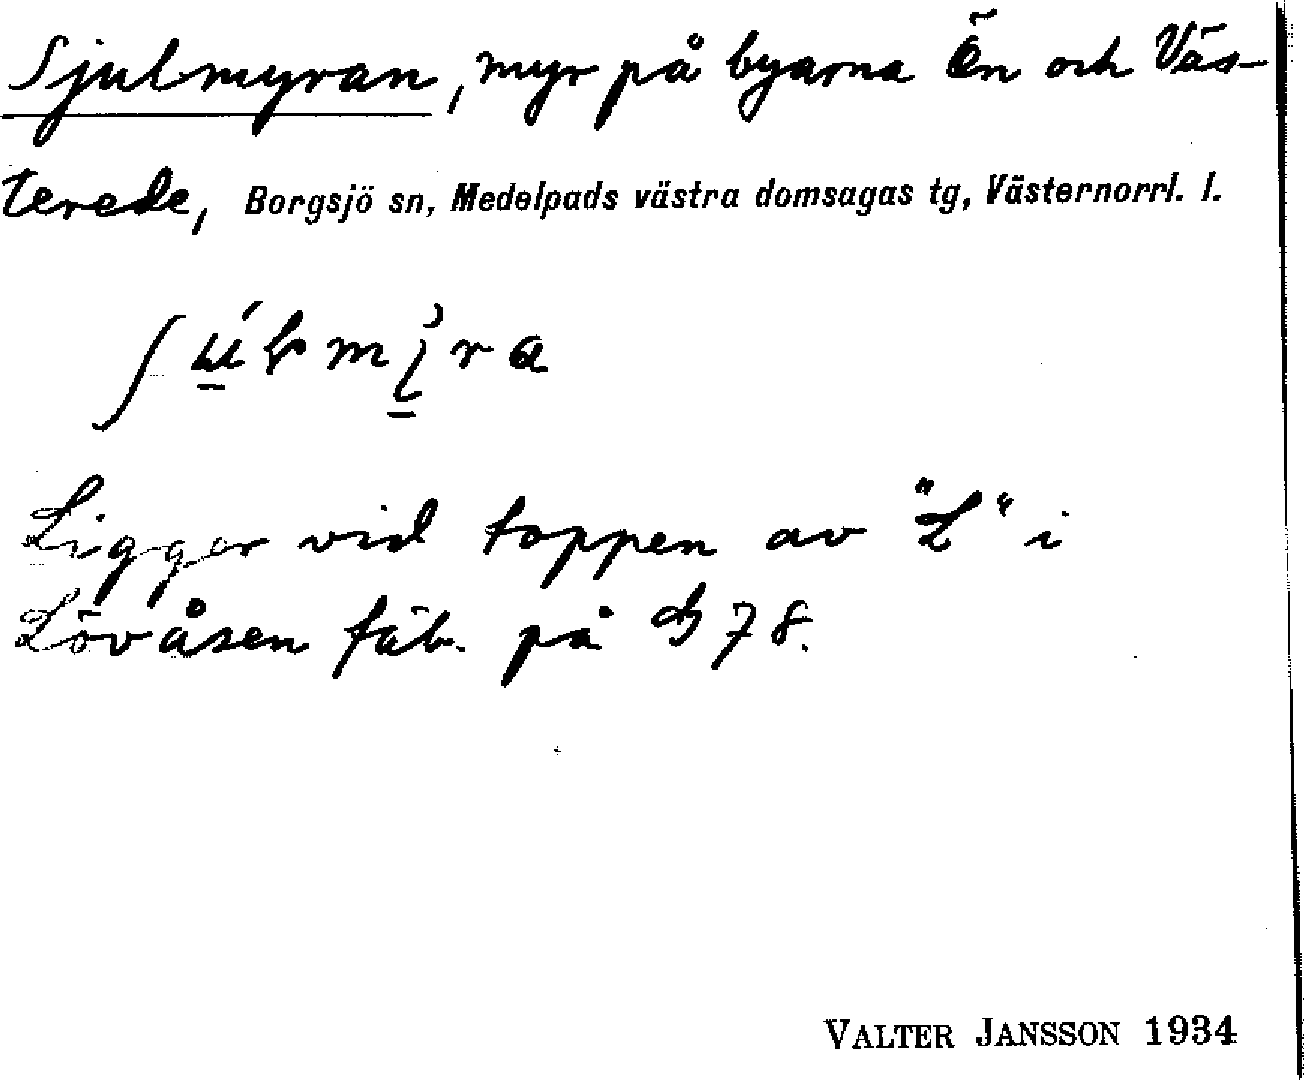 Sjulmyran, myr på byarna Ön och Väs-
terede, Borgsjö sn, Medelpads västra domsagas tg, Västernorrl. l.
Ligger vid toppen av "L" i
Lövåsen fäb. på G 78.
VALTER JANSSON 1934